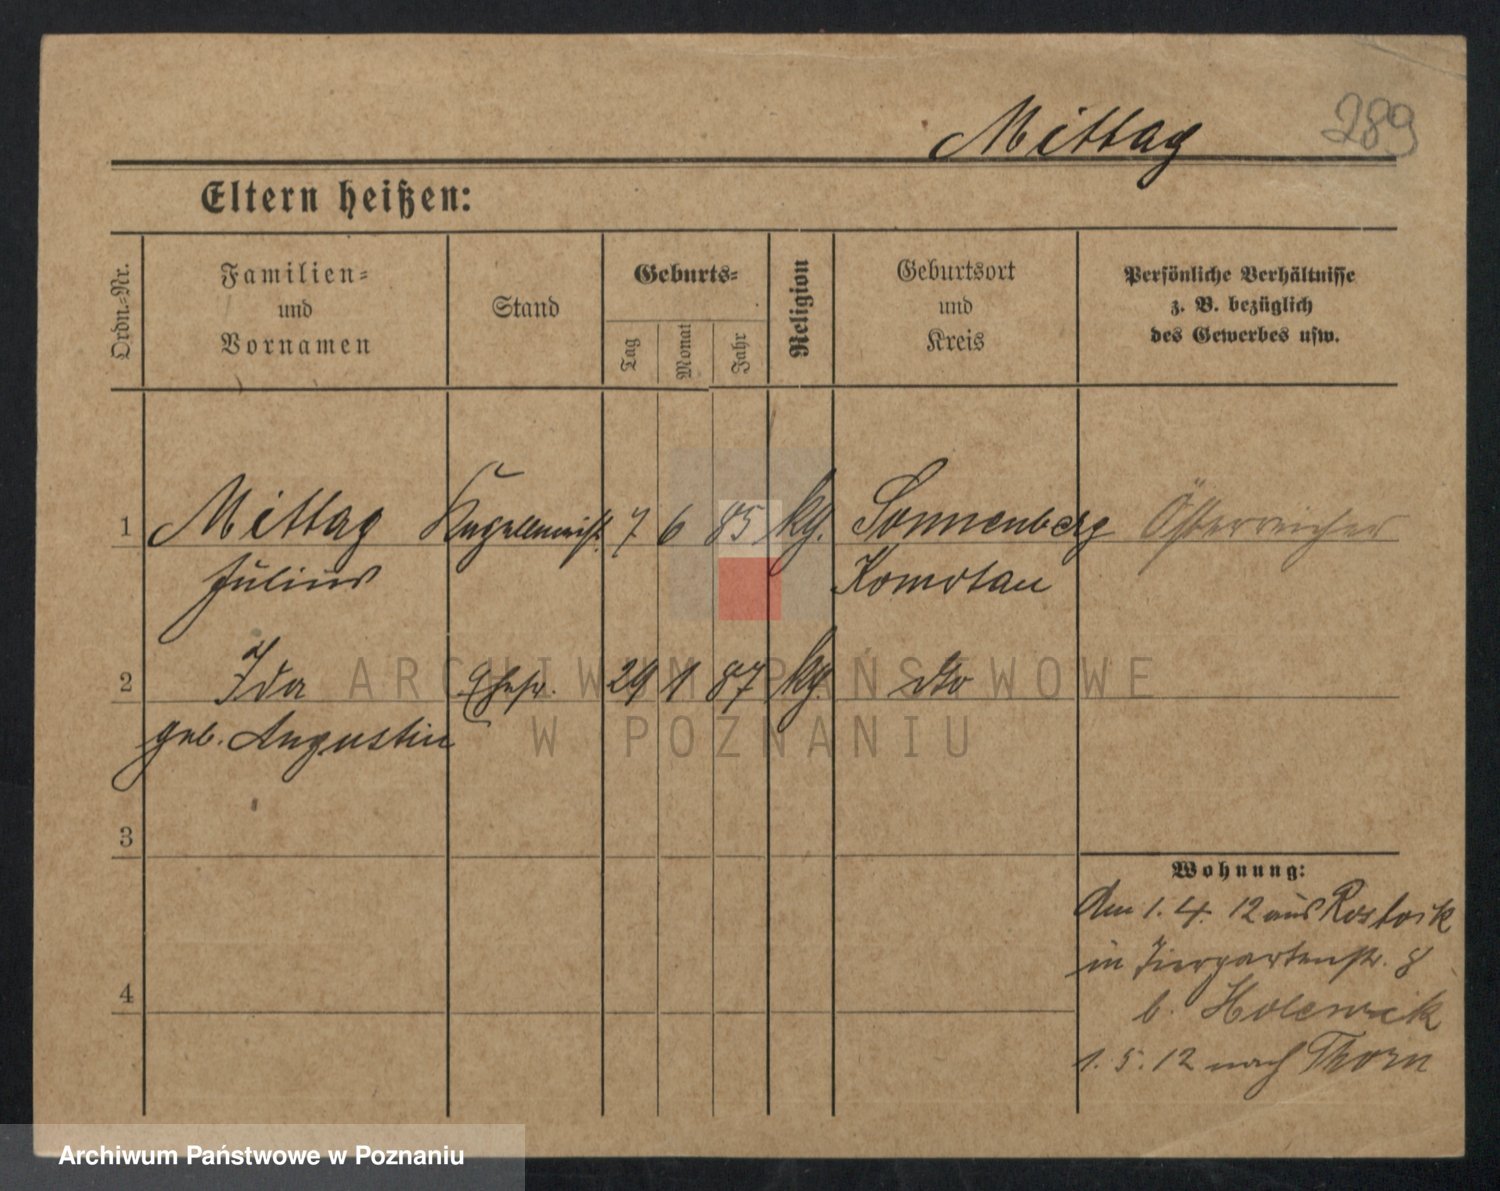 289
Mittag
Eltern heißen:
Ordn.-Nr.
Familien-
und
Vornamen
Stand
Geburts-
Tag
Monat
Jahr
Religion
Geburtsort
und
Kreis
Persönliche Verhältnisse
z. B. bezüglich
des Gewerbes usw.
1 Mittag Kapellmeist. 7 6 85 kg. Sonnenberg Österreicher
Julius Komotau
2 Ida Ehefr. 29 1 87 kg. dto
geb. Augustin
3
4
Wohnung:
Am 1. 4. 12 aus Rostock
in Tiergartenstr. 8
b.
1. 5. 12 nach Thorn
ARCHIWUM PAŃSTWOWE
W POZNANIU
Archiwum Państwowe w Poznaniu